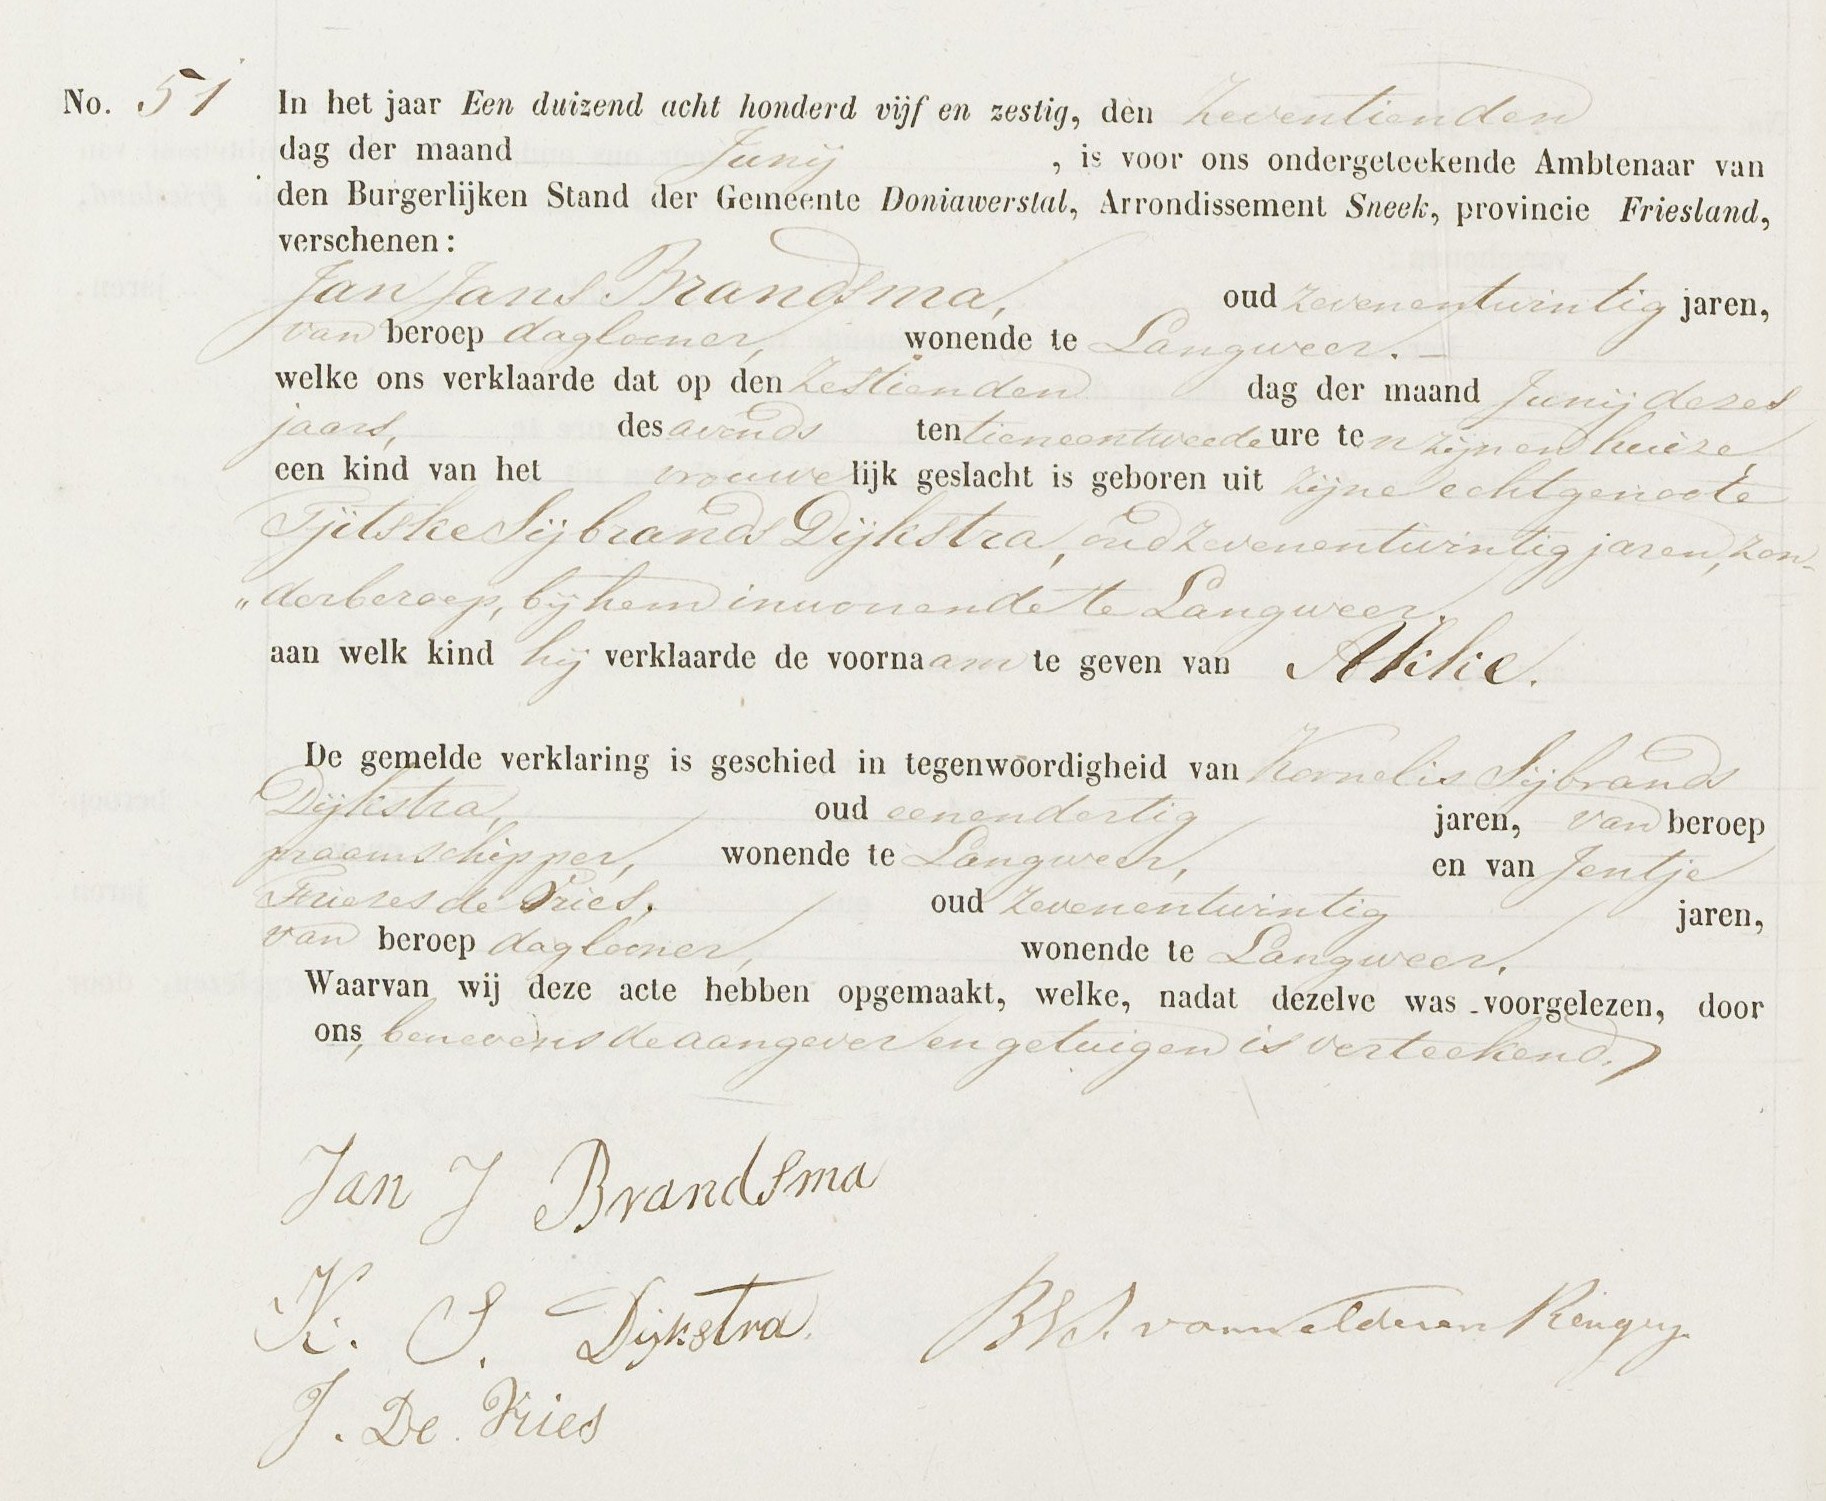 No. 51 In het jaar Een duizend acht honderd vijf en zestig, den zeventienden
dag der maand Junij , is voor ons ondergeteekende Ambtenaar van
den Burgerlijken Stand der Gemeente Doniawerstal, Arrondissement Sneek, provincie Friesland,
verschenen:
Jan Jans Brandsma, oud zevenentwintig jaren,
van beroep daglooner, wonende te Langweer.
welke ons verklaarde dat op den zestienden dag der maand Junij dezes
jaars, des avonds ten tieneentweede ure ten zijnen huize,
een kind van het vrouwelijk geslacht is geboren uit zijne echtgenoote
Tjitske Sijbrands Dijkstra, oud zevenentwintig jaren, zon-
„derberoep, bij hem inwonende te Langweer.
aan welk kind hij verklaarde de voornaam te geven van Akke.
De gemelde verklaring is geschied in tegenwoordigheid van Kornelis Sijbrands
Dijkstra, oud eenendertig jaren, van beroep
praamschipper, wonende te Langweer, en van Jentje
de Vries, oud zevenentwintig jaren,
van beroep daglooner, wonende te Langweer.
Waarvan wij deze acte hebben opgemaakt, welke, nadat dezelve was voorgelezen, door
ons, benevens de aangever en getuigen is verteekend.
Jan J Brandsma
K. S. Dijkstra
van
J. De Vries